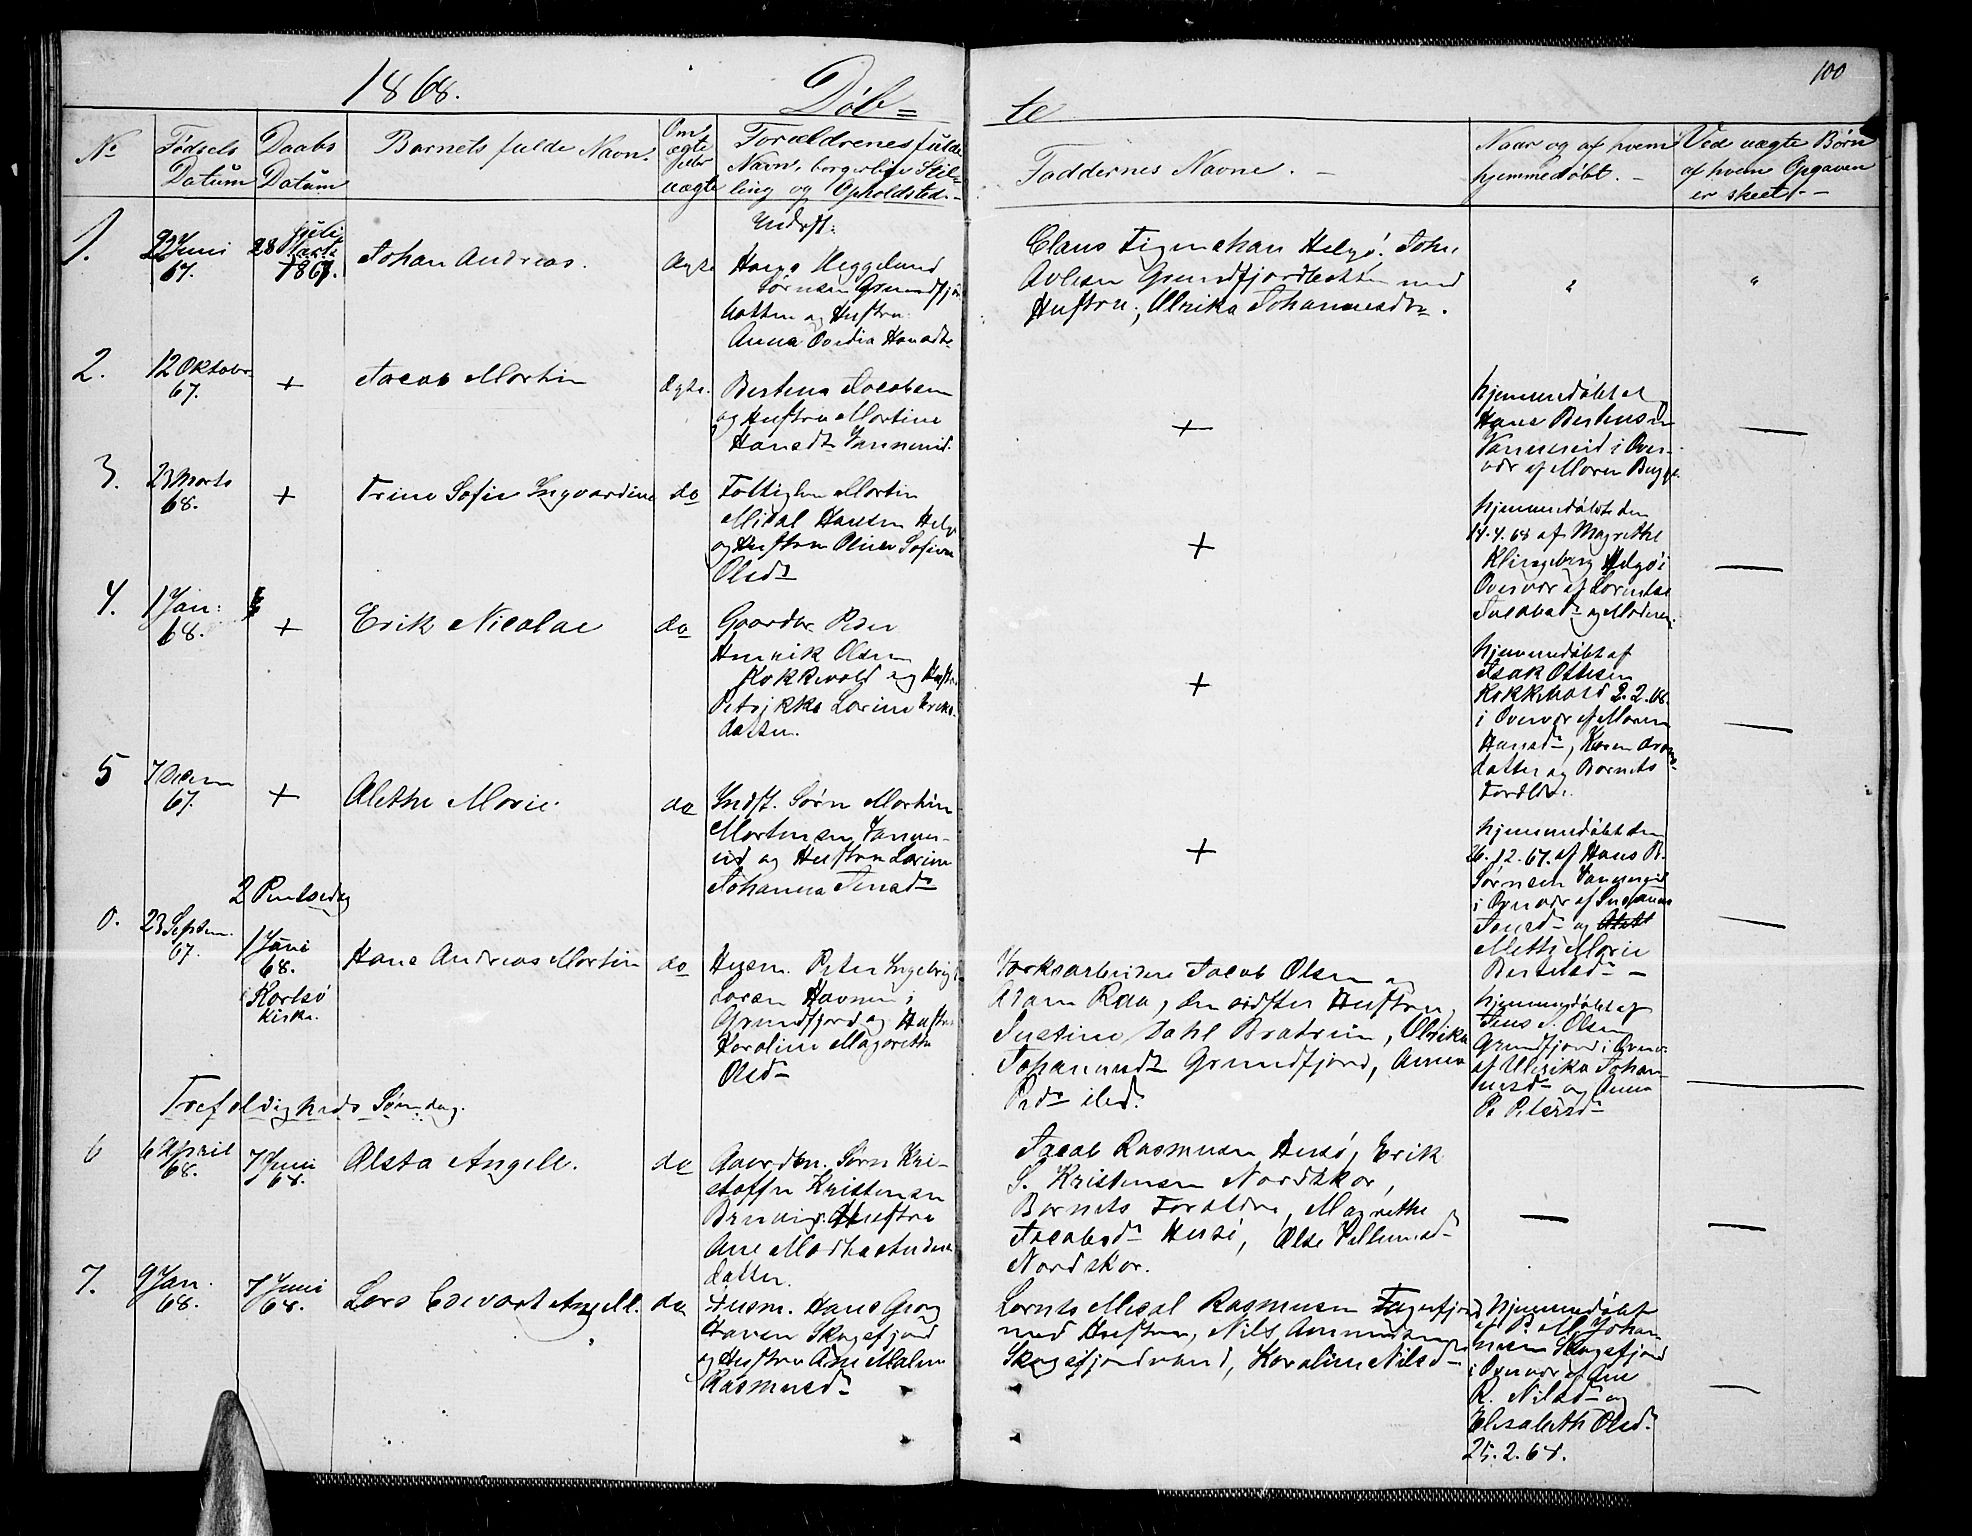 1868.
Döb=
te
100
No
Fødsels
Datum
Daabs
Datum
Barnets fulde Navn.
Om
ægte
eller
uægte
Forældrenes fulde
Navn, borgerlige Stil-
ling og Opholdsted.-
Faddernes Navne. -
Naar og af hvem
hjemmedøbt. -
Ved uægte Børn
af hvem Opgaven
er skeet. -
1.
22 Juni
67.
28 Juli
1867.
Johan Andreas.
Ægte
Indst.
Hans Heggelund
Sørensen Grundfj
botten og Hustru
Anna Ovidia Hansdtr
Claus Figenschau Helgø, John
Grundfjordbotten med
Hustru, Ulrika Johannesdtr.
"
"
2.
12 Oktober
67.
+
Jacob Martin
Ægte.
Jacobsen
og Hustru Martine
Hansdtr Vannereid.
+
hjemmedøbt af
Hans Bertheusen
Vannereid i Over-
vær af Moren
—
3.
23 Marts
68.
+
Trine Sofie Ingvardine
do
Fattiglem Martin
Mical Hansen Helgø
og Hustru Oline Sofie
Olsdtr
+
hjemmedøbt den
14.4.68 af Magrethe
Klingeberg Helgø i
Overvær af Lorentse
Jacobsdtr og Moderen.
—
4.
1 Jan:
68.
+
Erik Nicolai
do
Gaardbr. Peder
Henrik Olsen
Kokkevold og Hustr.
Petrikke Lorine Eriks
datter.
+
hjemmedøbt af
Isak Ottesen
Kokkevold 2.2.68.
i Overvær af Maren
Hansdtr, Karen Arons-
datter og Barnets
Forældre.
—
5
7 Decem
67.
+
Alethe Marie.
do
Indst. Sørn Martin
Mortensen Vanne-
eid og Hustru Lorine
Johanna Jensdtr
+
hjemmedøbt den
26.12.67. af Hans B.
Sørnsen Vannereid
i Overvær af Susanna
Jensdtr og
Methe Marie
Bertelsdtr —
—
2 Pintsedag
0.
23 Septem.
67.
1 Juni
68.
i Karlsø
Kirke.
Hans Andreas Martin
do
Husm. Peter Ingebrigt
Larsen Havnen i
Grundfjord og Hustru
Karoline Magarethe
Olsdtr
Værksarbeidere Jacob Olsen og
Adam Raa, den sidstes Hustru
Justine Dahl Bratrein, Ulrika
Johannesdtr Grundfjord, Anna
Pedtr ibid.
hjemmedøbt af
Jens J. Olsen
Grundfjord i Overv.
af Ulerika Johan-
nesdtr og Anna
P. Petersdtr
—
Trefoldigheds Søndag.
6
6 April
68.
7 Juni
68.
Alsta Angell.
do
Gaardbr. Sørn Kri-
stoffer Kristensen
Hustru
Ane Martha Anders
datter.
Jacob Rasmusen Husø, Erik
S. Kristensen Nordskar,
Barnets Forældre, Magrethe
Jacobsdtr Husø, Else Villumsdtr
Nordskar.
—
—
7.
9 Jan.
68.
7 Juni
68.
Lars Edevart Angell.
do
Husm. Hans Georg
Skogsfjord
og Hustru Ane Malene
Rasmusdtr
Lornts Mical Rasmusen Fagerfjord
med Hustru, Nils Amundsen
Skogsfjordvand, Karoline Nilsdtr
hjemmedøbt
af P. M. Johan-
nesen Skogsfjord
i Overvær af Ane
R. Nilsdtr og
Elisabeth Olsdtr
25.2.68.
—